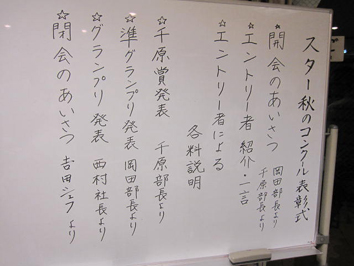 スター秋のコンクール表彰式
☆開会のあいさつ 岡田部長より
千原部長より
☆エントリー者 紹介・一言
☆エントリー者による
各料説明
☆千原賞発表 千原部長より
☆準グランプリ発表 岡田部長より
☆グランプリ発表 西村社長より
☆閉会のあいさつ 吉田シェフより